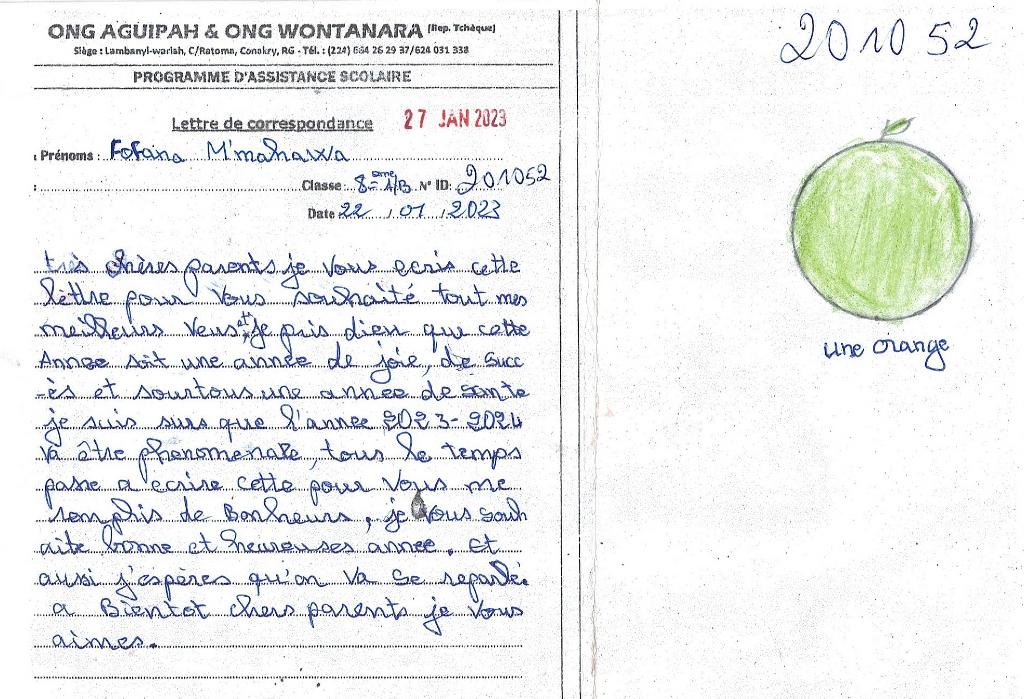 ONG AGUIPAH & ONG WONTANARA (Rep. Tchèque)
Siège : Lambanyi-wariah, C/Ratoma, Conakry, RG - Tél. : (224) 664 26 29 37/624 031 338
PROGRAMME D'ASSISTANCE SCOLAIRE
Lettre de correspondance 27 JAN 2023
Prénoms : Fofana M'mahawa
Classe : 8ème A/B N° ID: 201052
Date 22 / 01 / 2023
très chères parents je vous ecris cette
lettre pour vous souhaité tout mes
meilleurs veus et je pris dieu que cette
Annee soit une année de joie, de succ
-ès et sourtous une annee de sante
je suis surs que l'annee 2023-2024
va être phenomenale, tous le temps
passe a ecrire cette pour vous me
remplis de Bonheurs, je vous souh
aite bonne et heureuses annee. Et
aussi j'espères qu'on va se reparlé.
a Bientot chers parents je vous
aimes.
201052
une orange